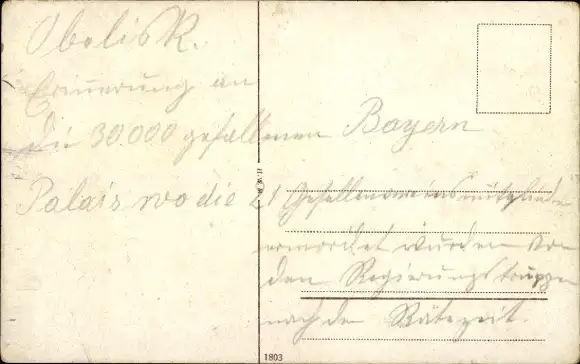 Obelisk.
Erinnerung an
die 30.000 gefallenen Bayern
Palais wo die 21 Gesellenvereinsmitglieder
ermordet wurden von
den Regierungstruppen
nach der Rätezeit.
1803